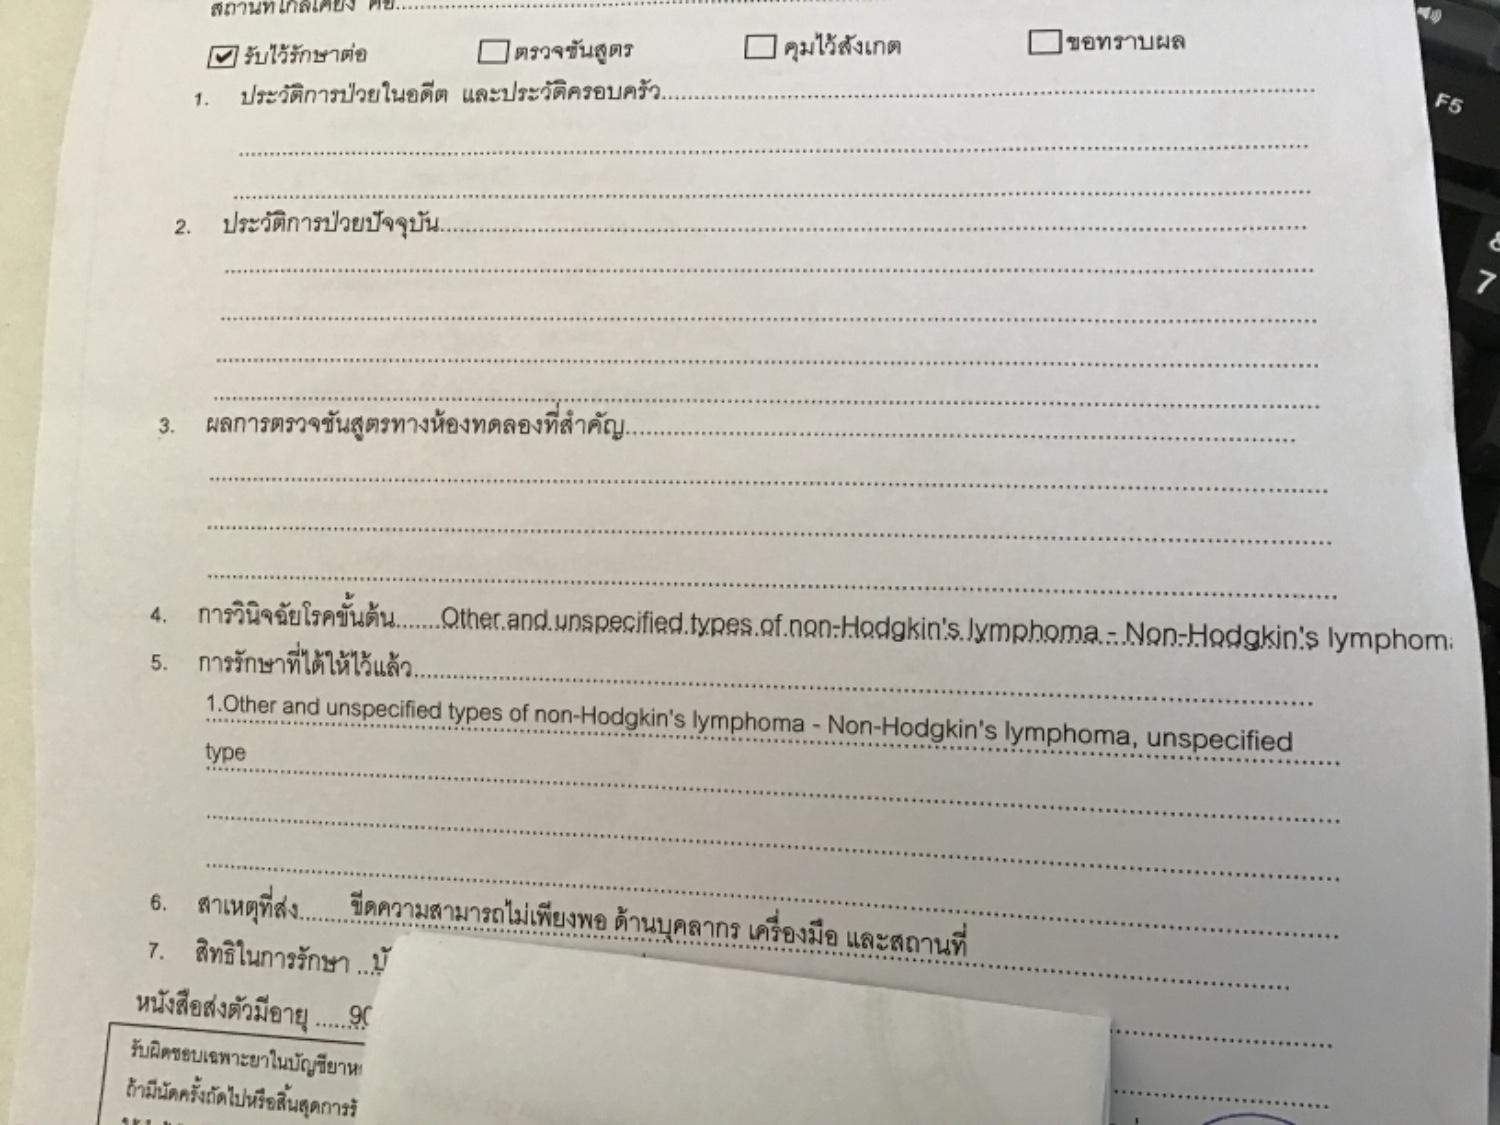 สถานที่ใกล้เคียง คือ
☑ รับไว้รักษาต่อ ☐ ตรวจชันสูตร ☐ คุมไว้สังเกต ☐ ขอทราบผล
1. ประวัติการป่วยในอดีต และประวัติครอบครัว
2. ประวัติการป่วยปัจจุบัน
3. ผลการตรวจชันสูตรทางห้องทดลองที่สำคัญ
4. การวินิจฉัยโรคขั้นต้น Other and unspecified types of non-Hodgkin's lymphoma - Non-Hodgkin's lymphom
5. การรักษาที่ได้ให้ไว้แล้ว
1.Other and unspecified types of non-Hodgkin's lymphoma - Non-Hodgkin's lymphoma, unspecified
type
6. สาเหตุที่ส่ง ขีดความสามารถไม่เพียงพอ ด้านบุคลากร เครื่องมือ และสถานที่
7. สิทธิในการรักษา
หนังสือส่งตัวมีอายุ 90
รับผิดชอบเฉพาะยาในบัญชียาห
ถ้ามีนัดครั้งถัดไปหรือสิ้นสุดการรั
F5
8
7